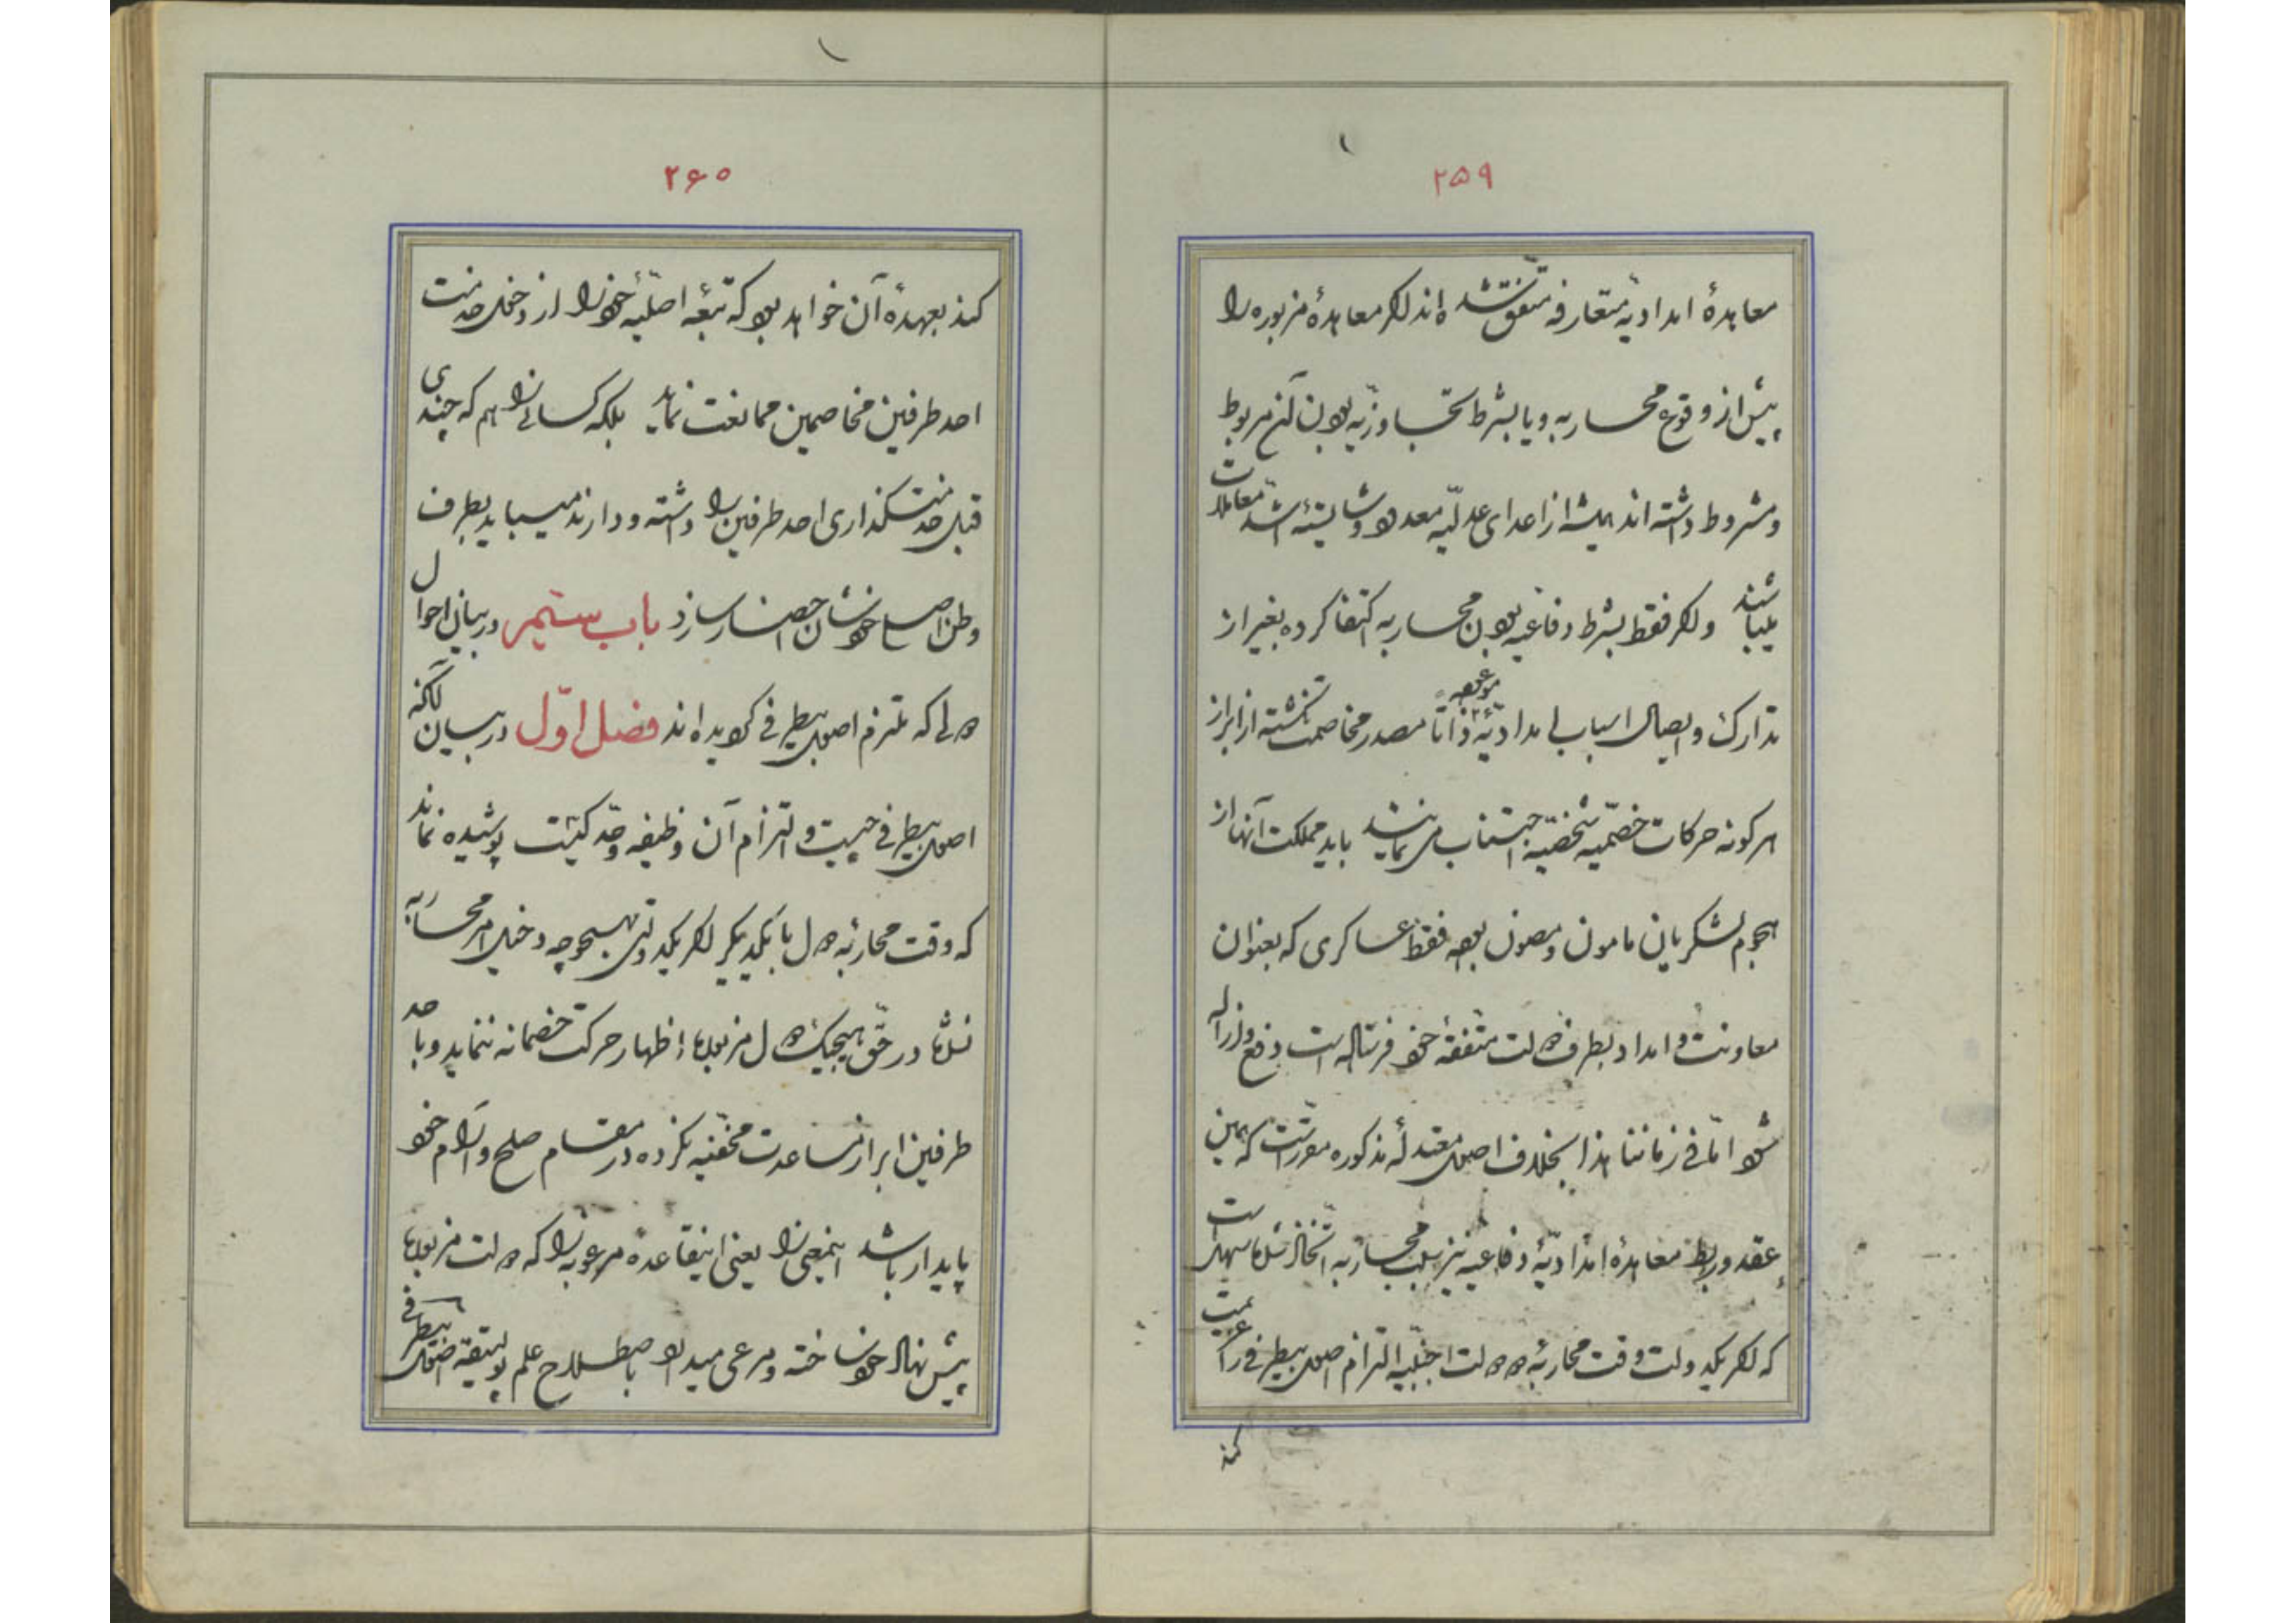 ۲۵۹
معاهدهٔ امدادیهٔ متعارفه متفق شده اند لکن معاهدهٔ مزبوره را
پیش از وقوع محاربه و یا بشرط تجاوزیه بودن آن مربوط
و مشروط داشته اند همیشه از اعدای عدلیه معدود و شایستهٔ اشد معاملات
میباشند ولکن فقط بشرط دفاعیه بودن محاربه اکتفا کرده بغیر از
تدارک و ایصال اسباب امدادیهٔ موعوده ذاتا مصدر مخاصمت نگشته از ابراز
هر کونه حرکات خصمیه شخصیه اجتناب می نمایند باید مملکت آنها از
هجوم لشکریان مامون و مصون بوده فقط عساکری که بعنوان
معاونت و امداد بطرف دولت متفقهٔ خود فرستاده است دفع و ازاله
شود امّا فی زماننا هذا بخلاف اصول معتدلهٔ مذکوره مقرر است که همین
عقد و ربط معاهدهٔ امدادیّهٔ دفاعیه نیز سبب محاربه اتخاذ شدها سهل است
که اکر یک دولت وقت محاربهٔ دو دولت اجنبیه التزام اصول بیطرفی را عیت
کند
۲۶۰
کند بعهدهٔ آن خواهد بود که تبعهٔ اصلیهٔ خود را از دخول خدمت
احد طرفین مخاصمین ممانعت نماید بلکه کسانی را هم که چندی
قبل خدمتکذاری احد طرفین را داشته و دارند میباید بطرف
وطن اصلی خودشان احضار سازد باب ستیم در بیان احوال
دولی که ملتزم اصول بیطرفی کردیده اند فصل اوّل در بیان آنکه
اصول بیطرفی چیست و التزام آن وظیفه و حدّ کیست پوشیده نماند
که وقت محاربهٔ دول با یکدیکر اکر یک دولتی بهیچوجه دخیل امر محاربه
نشدها در حقّ هیچیک دول مزبورها اظهار حرکت خصمانه ننماید و با احد
طرفین ابراز مساعدت مخفیه نکرده در مقام صلح و آرام خود
پایدار باشد اینمعنی را یعنی اینقاعده مرغوبه را که دولت مزبورها
پیش نهاد خود ساخته و مرعی میدارد باصطلاح علم پولیتیقه اصول بیطرفی